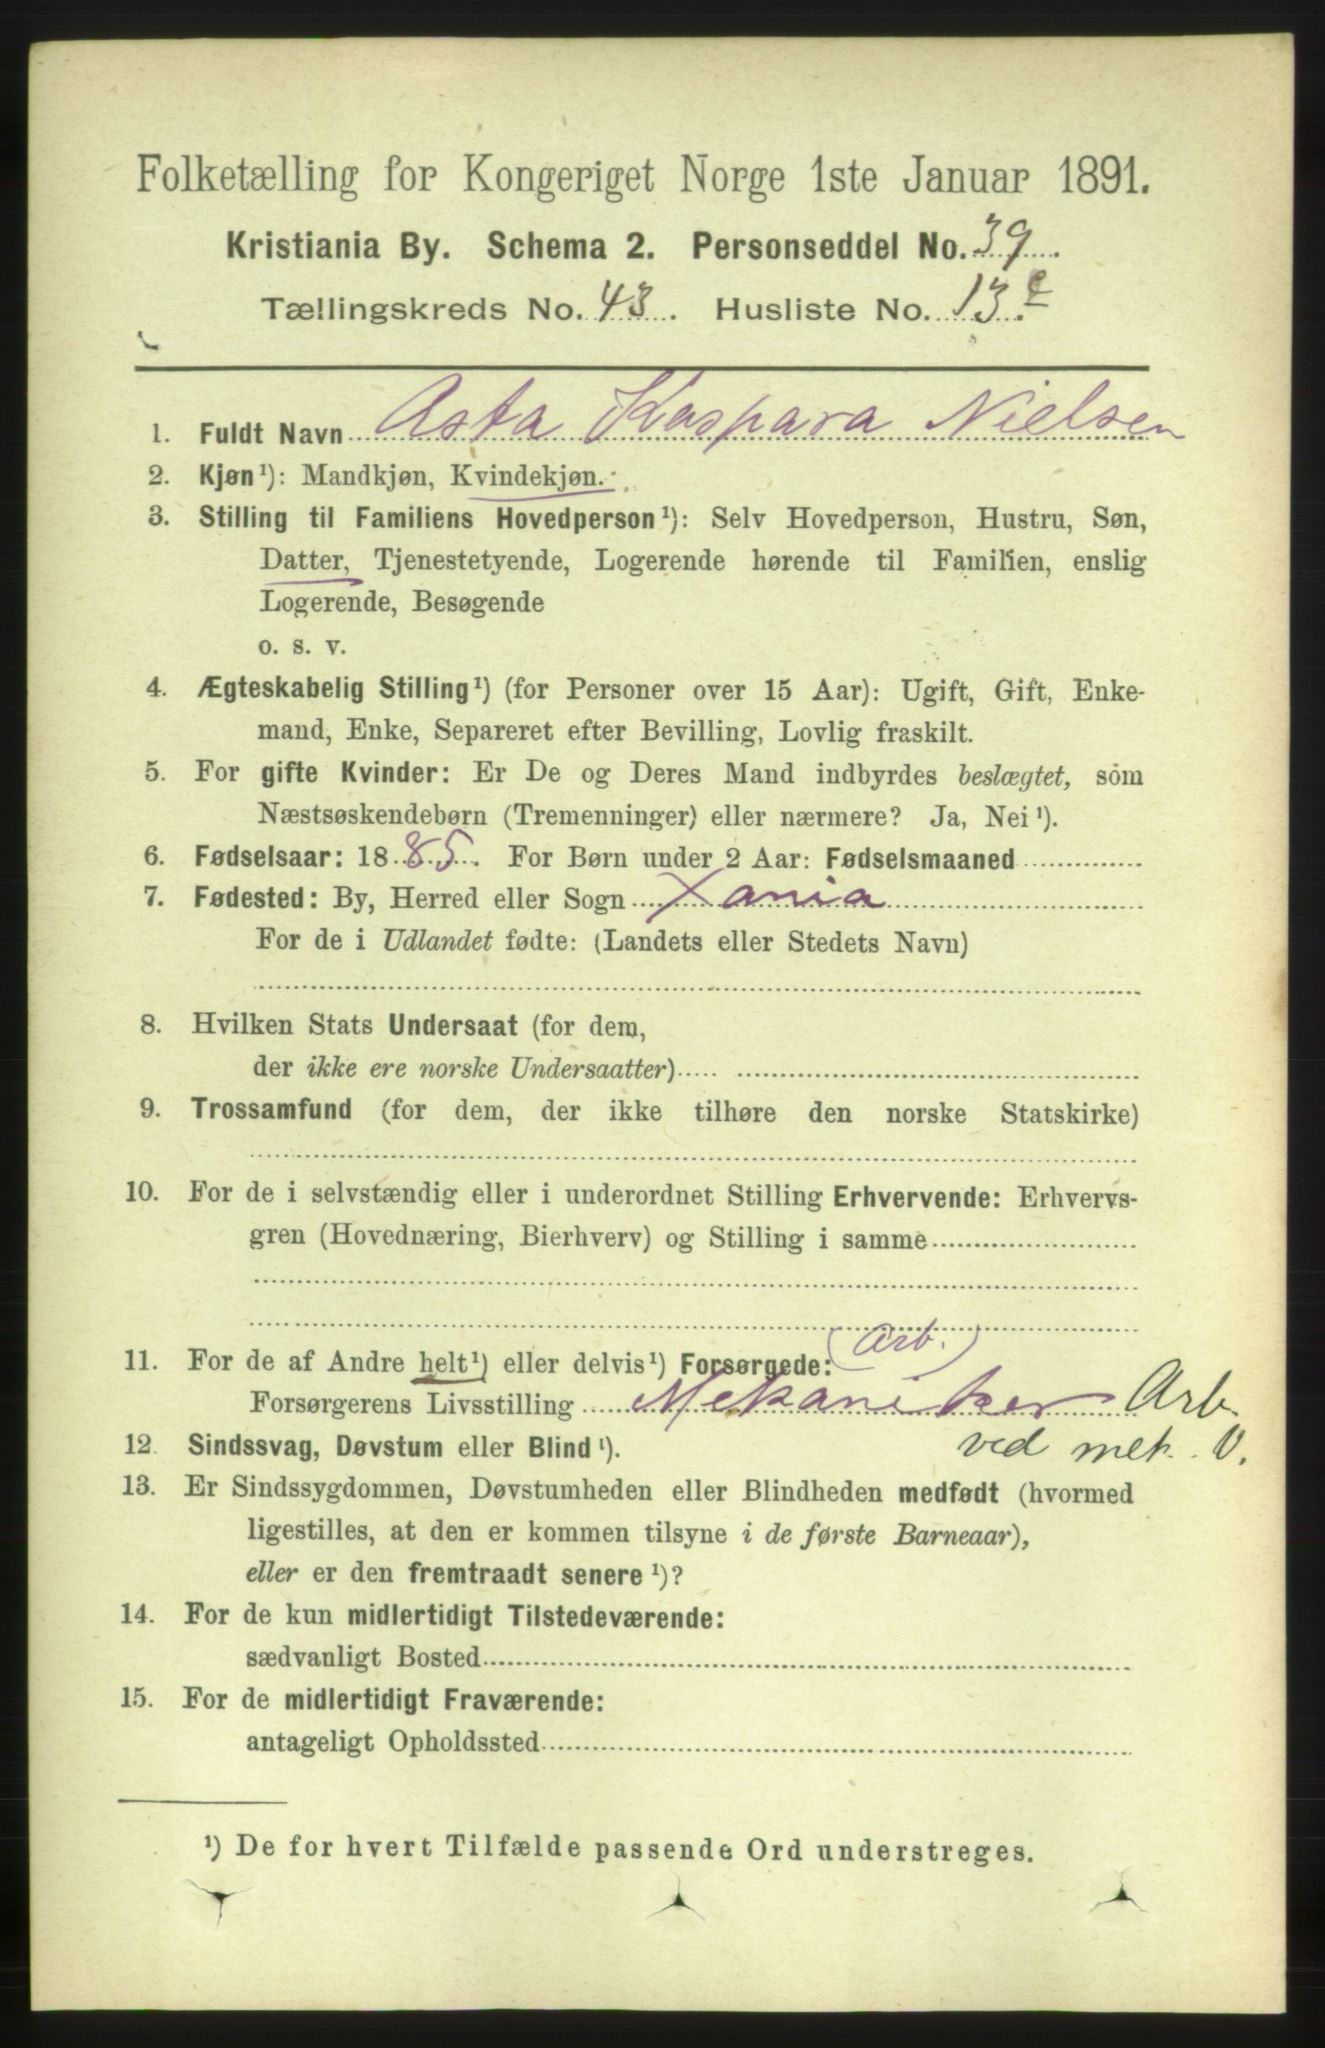 Folketælling for Kongeriget Norge 1ste Januar 1891.
Kristiania By. Schema 2. Personseddel No. 39
Tællingskreds No. 43. Husliste No. 13.c
1. Fuldt Navn Asta Kaspara Nielsen
2. Kjøn¹): Mandkjøn, Kvindekjøn.
3. Stilling til Familiens Hovedperson¹): Selv Hovedperson, Hustru, Søn,
Datter, Tjenestetyende, Logerende hørende til Familien, enslig
Logerende, Besøgende
o. s. v.
4. Ægteskabelig Stilling¹) (for Personer over 15 Aar): Ugift, Gift, Enke-
mand, Enke, Separeret efter Bevilling, Lovlig fraskilt.
5. For gifte Kvinder: Er De og Deres Mand indbyrdes beslægtet, som
Næstsøskendebørn (Tremenninger) eller nærmere? Ja, Nei¹).
6. Fødselsaar: 1885. For Børn under 2 Aar: Fødselsmaaned
7. Fødested: By, Herred eller Sogn Xania
For de i Udlandet fødte: (Landets eller Stedets Navn)
8. Hvilken Stats Undersaat (for dem,
der ikke ere norske Undersaatter)
9. Trossamfund (for dem, der ikke tilhøre den norske Statskirke)
10. For de i selvstændig eller i underordnet Stilling Erhvervende: Erhvervs-
gren (Hovednæring, Bierhverv) og Stilling i samme
(Arb.)
11. For de af Andre helt¹) eller delvis¹) Forsørgede:
Forsørgerens Livsstilling Mekaniker Arb
ved mek. V.
12. Sindssvag, Døvstum eller Blind¹).
13. Er Sindssygdommen, Døvstumheden eller Blindheden medfødt (hvormed
ligestilles, at den er kommen tilsyne i de første Barneaar),
eller er den fremtraadt senere¹)?
14. For de kun midlertidigt Tilstedeværende:
sædvanligt Bosted
15. For de midlertidigt Fraværende:
antageligt Opholdssted
¹) De for hvert Tilfælde passende Ord understreges.